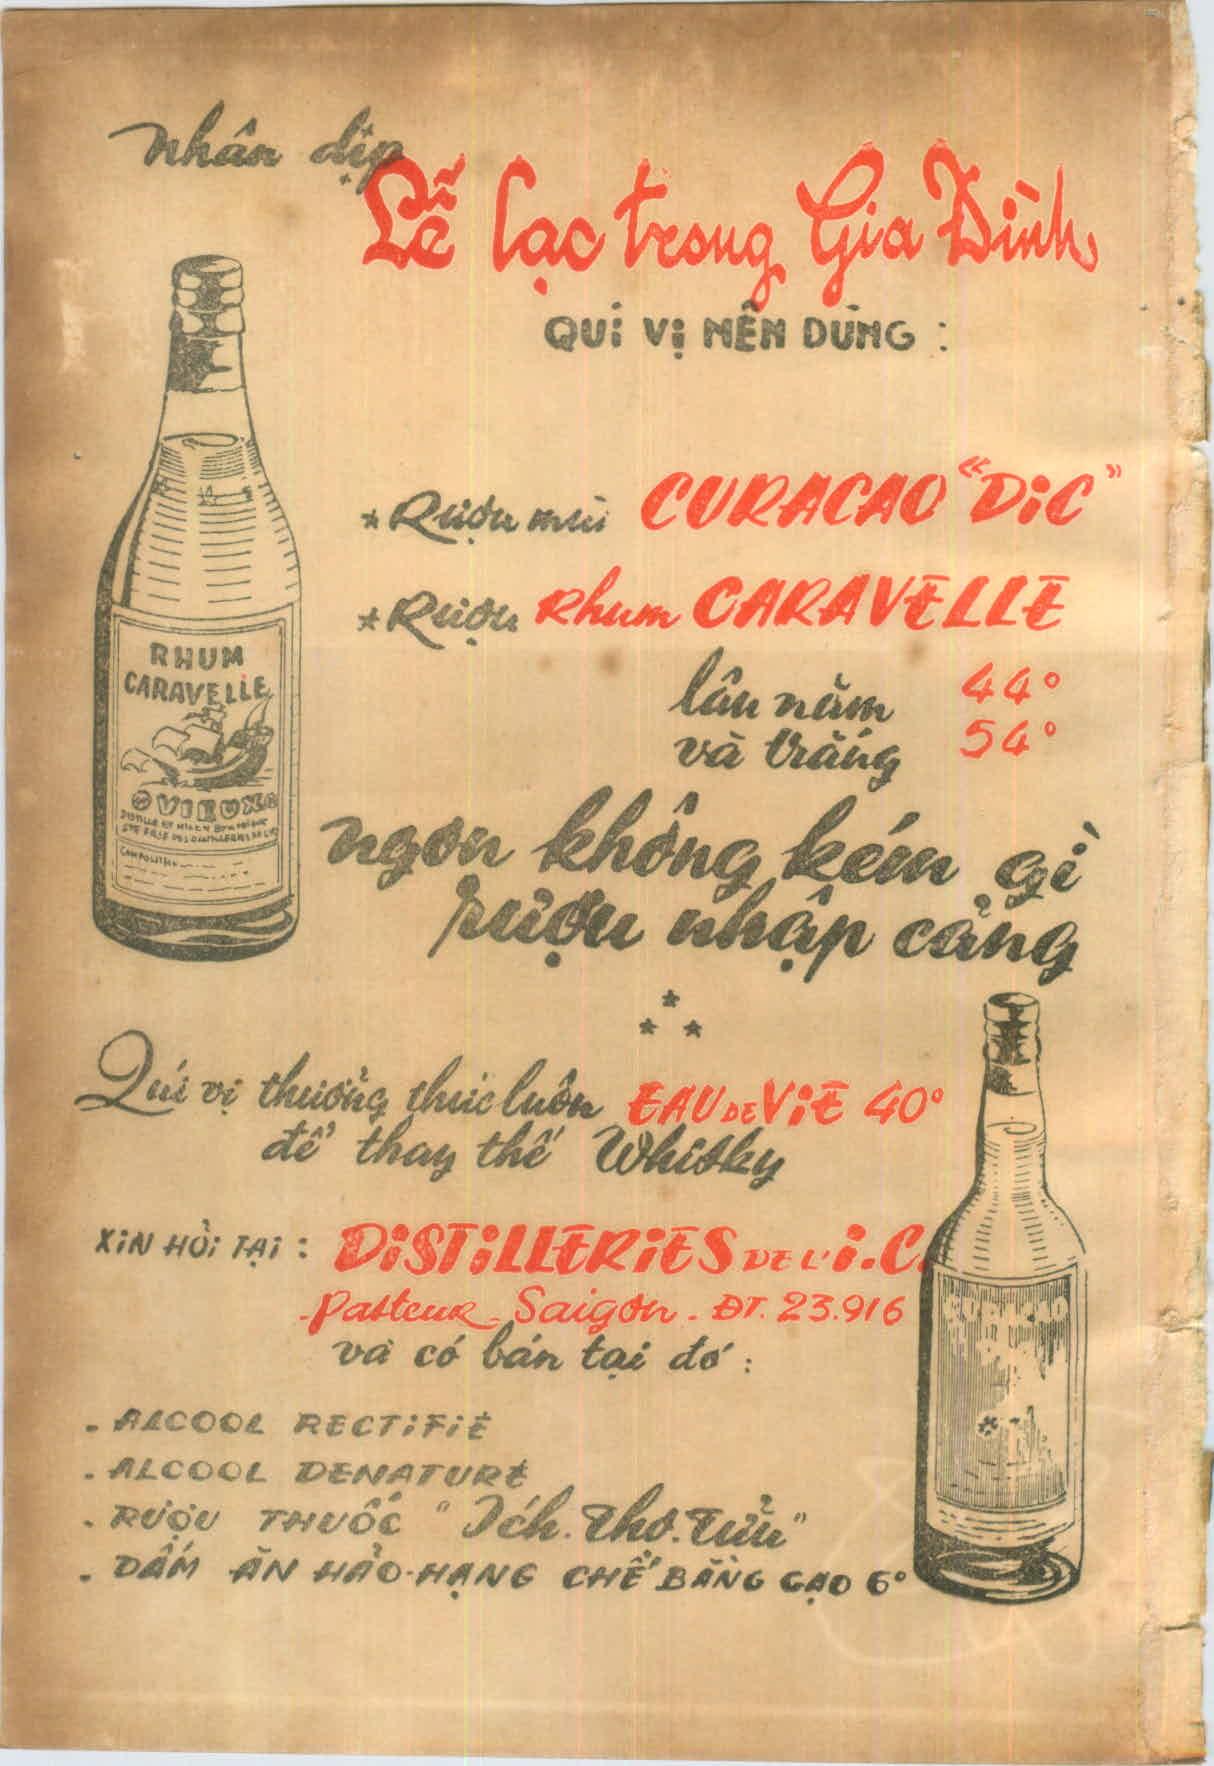 Nhân dịp
Lễ lạc trong Gia Đình
QUÍ VỊ NÊN DÙNG :
* Rượu mùi CURACAO "DIC"
* Rượu Rhum CARAVELLE
lâu năm 44°
và trắng 54°
ngon không kém gì
rượu nhập cảng
Quí vị thưởng thức luôn EAU DE VIE 40°
để thay thế Whisky
XIN HỎI TẠI : DISTILLERIES DE L'I.C.
- Pasteur - Saigon - ĐT. 23.916
và có bán tại đó :
- ALCOOL RECTIFIÉ
- ALCOOL DENATURÉ
- RƯỢU THUỐC "Ích.Thọ.Tửu"
- DẤM ĂN HẢO-HẠNG CHẾ BẰNG GẠO 6°
RHUM
CARAVELLE
VIEUX
CURACAO